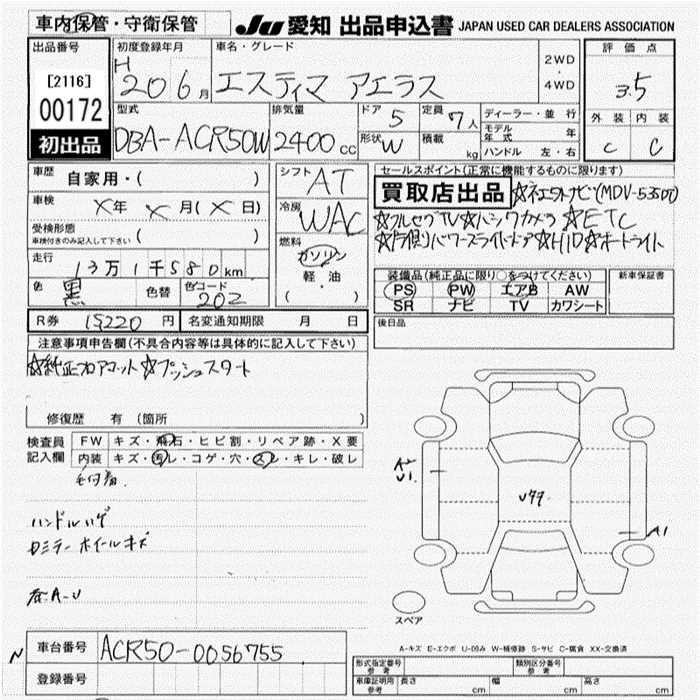 車内保管・守衛保管
JU 愛知 出品申込書 JAPAN USED CAR DEALERS ASSOCIATION
出品番号
[2116]
00172
初出品
初度登録年月
H 20 6月
車名・グレード
エスティマ アエラス
2WD
・
4WD
評価点
3.5
外装 内装
C C
型式
DBA-ACR50W
排気量
2400cc
ドア 5
形状 W
定員 7人
積載 kg
ディーラー・並行
モデル年式 年
ハンドル 左・右
車歴 自家用・( )
車検 ×年 ×月(×日)
受検形態
車検付きのみ記入して下さい ( )
走行 13万1千580km
色 黒 色替 色コード 202
シフト AT
冷房 WAC
燃料
ガソリン
軽油
( )
セールスポイント(正常に機能するものに限ります)
買取店出品
☆フルセグTV☆バックカメラ☆ETC
☆片側パワースライドドア☆HID☆オートライト
装備品(純正品に限り○をつけてください)
PS PW エアB AW
SR ナビ TV カワシート
新車保証書
後日品
R券 15220円 名変通知期限 月 日
注意事項申告欄(不具合内容等は具体的に記入して下さい)
☆プッシュスタート
修復歴 有 (箇所 )
検査員記入欄
FW キズ・飛石・ヒビ割・リペア跡・X要
内装 キズ・汚レ・コゲ・穴・スレ・キレ・破レ
ハンドルハゲ
ホイールキズ
A2
U1
A1
スペア
A-キズ E-エクボ U-凹み W-補修跡 S-サビ C-腐食 XX-交換済
車台番号 ACR50-0056755
登録番号
形式指定番号 参考 類別区分番号 参考
車庫証明用 参考 長さ cm 幅 cm 高さ cm